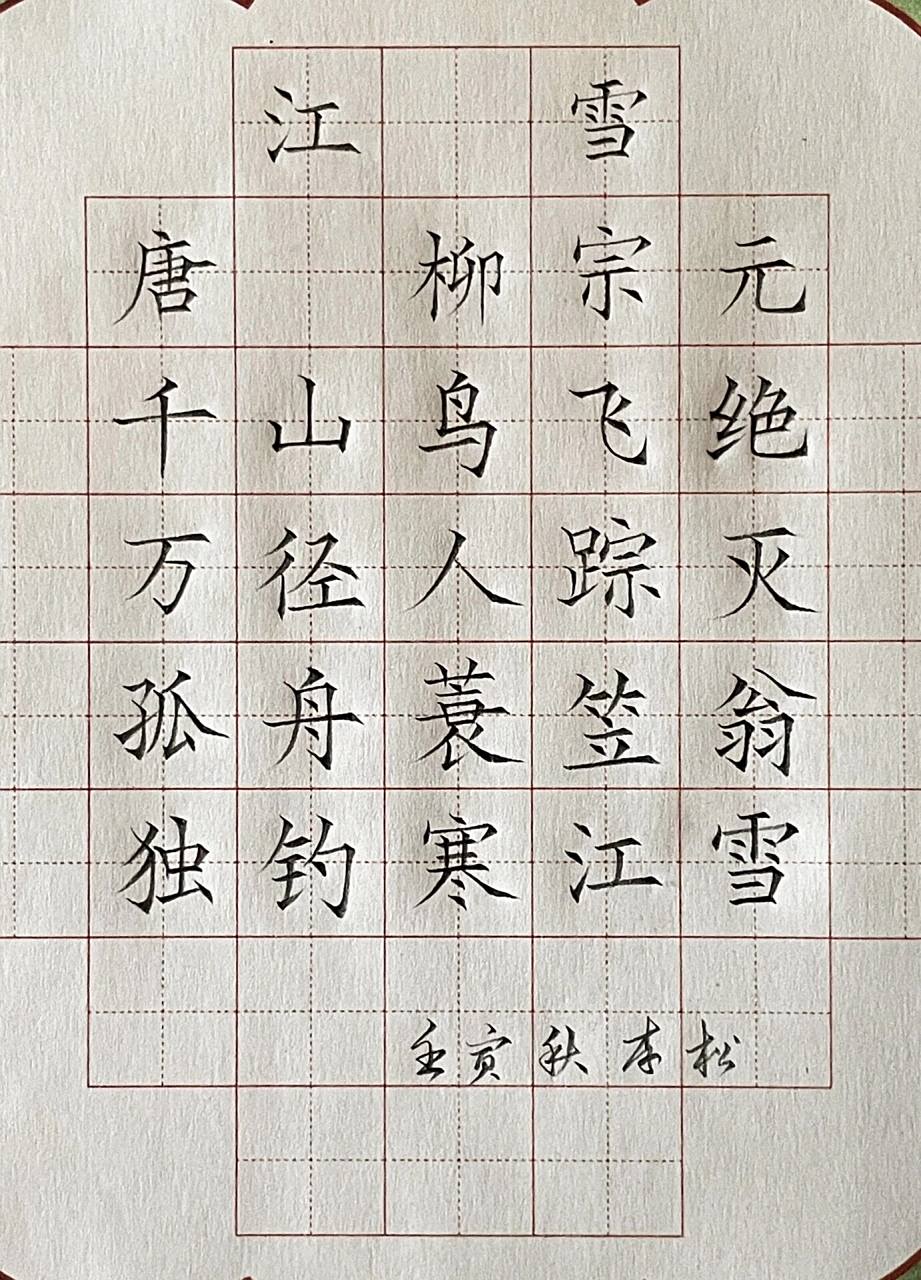 江 雪
唐 柳宗元
千山鸟飞绝
万径人踪灭
孤舟蓑笠翁
独钓寒江雪
壬寅秋李松